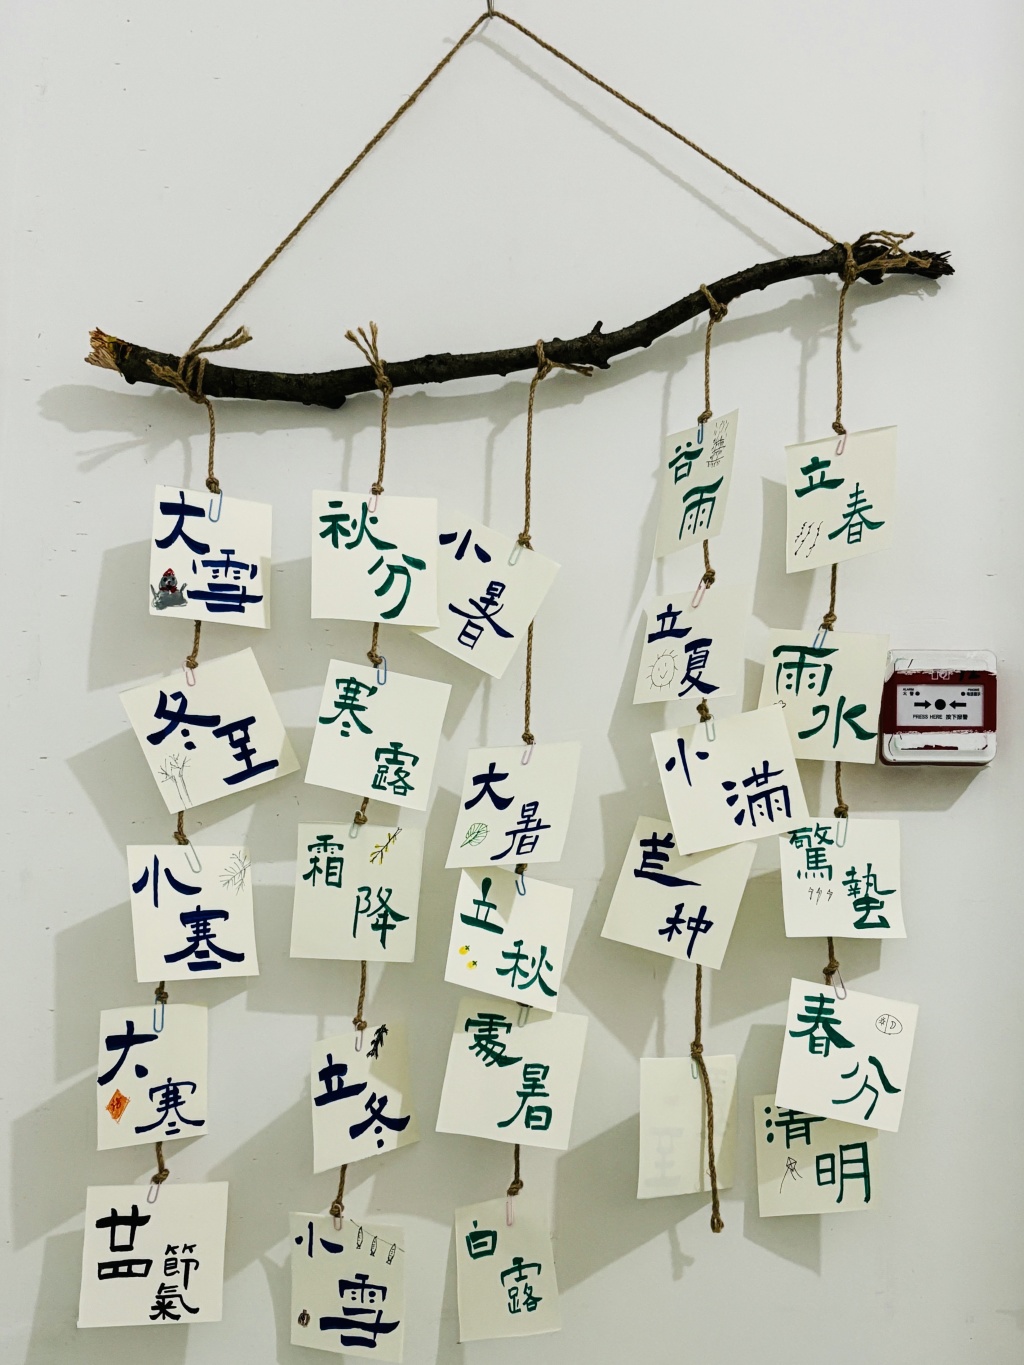 立春
雨水
驚蟄
春分
清明
谷雨
立夏
小滿
芒种
小暑
大暑
立秋
處暑
白露
秋分
寒露
霜降
立冬
小雪
大雪
冬至
小寒
大寒
廿四
節氣
PRESS HERE 按下报警